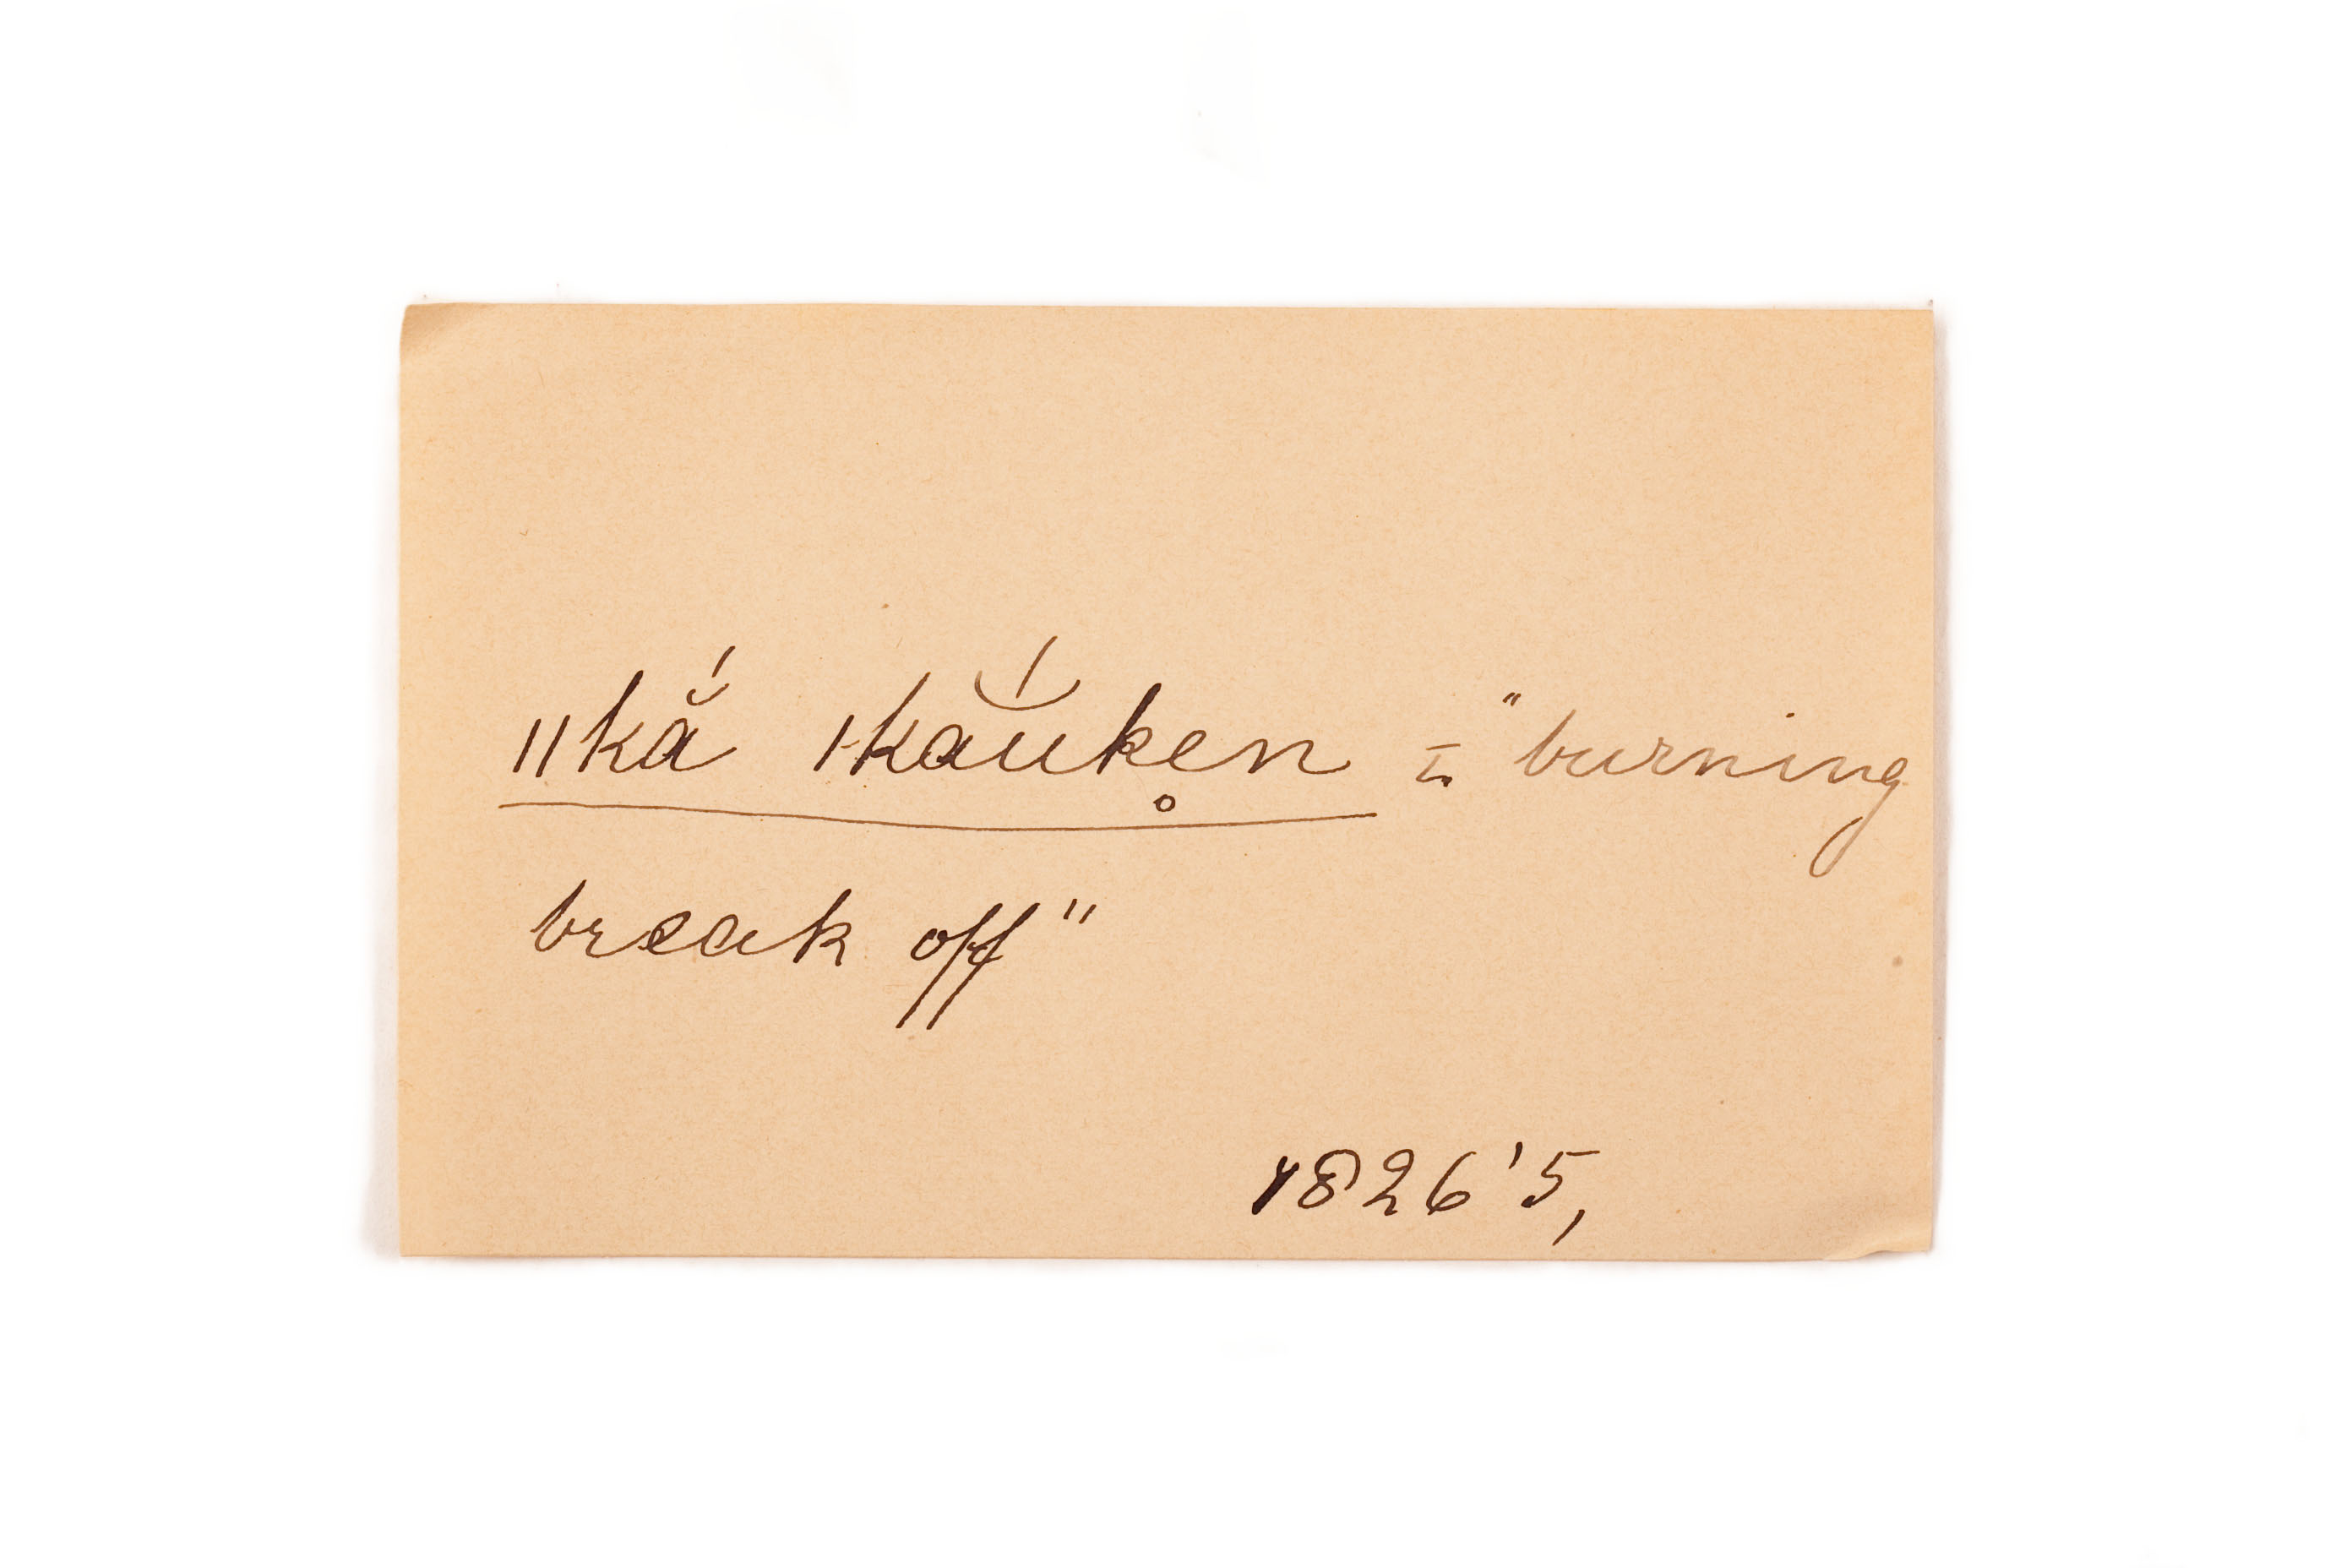 ǁkắ ǀkắu̯ke̥n = "burning
break off"
1826'5,